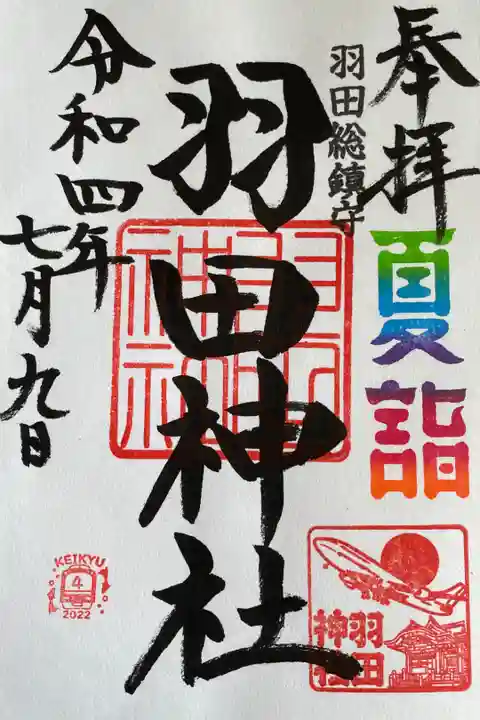 奉拝
夏詣
羽田総鎮守
羽田神社
羽田神社
令和四年
七月九日
羽田
神社
KEIKYU
4
2022